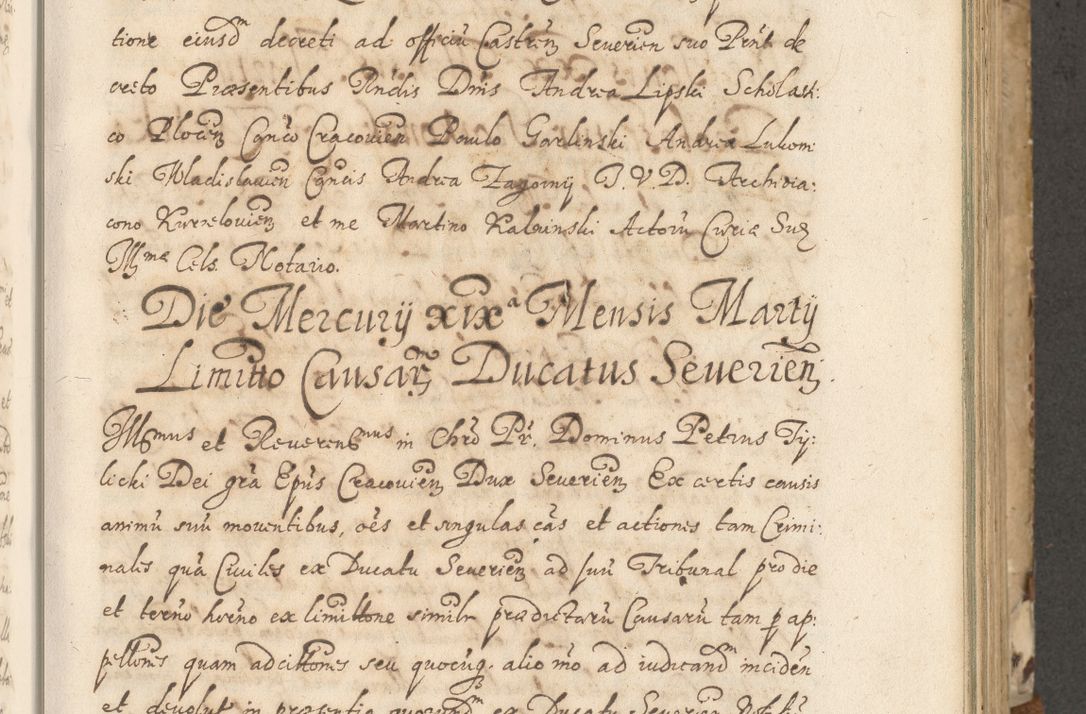 tione eiusdm decreti ad officiũ Castreñ Severień suo Prnt de
creto Præsentibus Rndis Dnis Andrea Lipski Scholasti:
co Płoceñ Canco Cracovień Paulo Garlinski Andrea Lukom
ski Wladislavień Cancis Andrea Zagorny J. V. D. Archidia:
cono Kurzelovień et me Martino Kalvinski Actorũ Curiæ Suæ
Illmæ Cels. Notario.
Die Mercurij xixa Mensis Martij
Limitto Causarm Ducatus Severień.
Illmus et Reverendmus in Chrō Pr. Dominus Petrus Ty:
licki Dei grã Epũs Cracovień Dux Severień Ex certis causis
animũ suũ moventibus, oẽs et singulas cãs et actiones tam Crimi:
nales quã Civiles ex Ducatu Severień ad suũ Tribunal pro die
et terno horno ex limittone simili prædictarũ Causarũ tam p ap:
pellones quam adcittones seu quocũq. alio mo ad iudicandm inciden
et devolut in præsentia quorundm ex Ducatu Severien